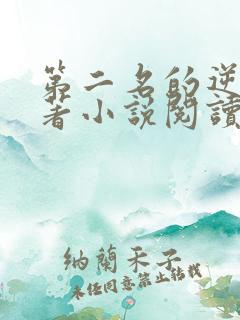 第二名的逆
著小説閱讀
納蘭禾子
未经同意禁止转载